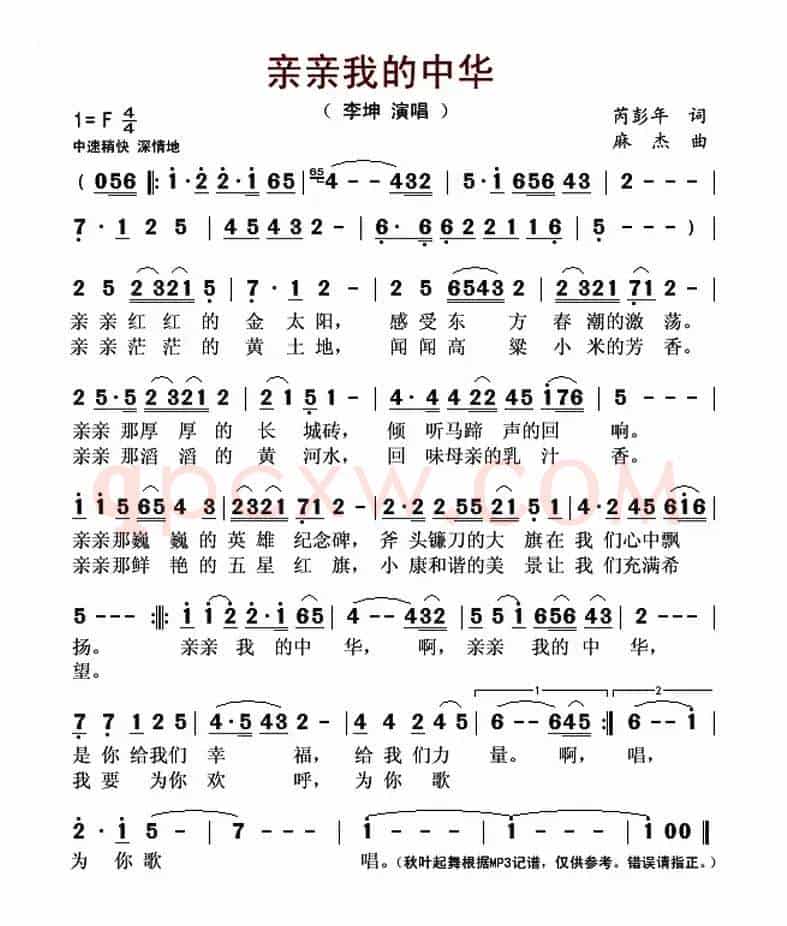 亲亲我的中华
（ 李坤 演唱 ）
1= F 4/4
芮彭年 词
中速稍快 深情地
麻 杰 曲
( 056 ‖: 1·2 2·1 65 | 65 4 - - 432 | 5·1 656 43 | 2 - - - |
7 · 1 2 5 | 4 5 4 3 2 - | 6· 6 6 2 2 1 1 6 | 5 - - - )
2 5 2 321 5 | 7 · 1 2 - | 2 5 6543 2 | 2 321 71 2 - |
亲 亲 红 红 的 金 太 阳， 感 受 东 方 春 潮的激 荡。
亲 亲 茫 茫 的 黄 土 地， 闻 闻 高 粱 小 米的芳 香。
2 5·5 2 321 2 | 2 1 5 - | 4· 4 4 22 45 176 | 5 - - - |
亲亲 那厚 厚 的 长 城砖， 倾 听马蹄 声的回 响。
亲亲 那滔 滔 的 黄 河水， 回 味母亲的乳 汁 香。
qpcxw.COM
1 1 5 65 4 3 | 2321 71 2 - | 2·2 2 55 21 5 | 4·2 45 616 |
亲亲那巍 巍 的 英 雄 纪念碑， 斧 头镰刀的大 旗在 我 们心中飘
亲亲那鲜 艳 的 五 星 红 旗， 小 康和谐的美 景让 我 们充满希
5 - - - :‖: 1 1 2 2·1 65 | 4 - - 432 | 5 5 1 656 43 | 2 - - - |
扬。 亲亲 我 的中 华， 啊， 亲亲 我的 中 华，
望。
1 2
7 7 125 | 4·5 43 2 - | 4 4 2 4 5 | 6 - - 645 :‖ 6 - - 1 |
是 你 给我们 幸 福， 给 我 们力 量。 啊， 唱，
我 要 为你 欢 呼， 为 你 歌
2 · 1 5 - | 7 - - - | 1 - - - | 1 - - - | 1 0 0 ‖
为 你 歌 唱。（秋叶起舞根据MP3记谱，仅供参考。错误请指正。）